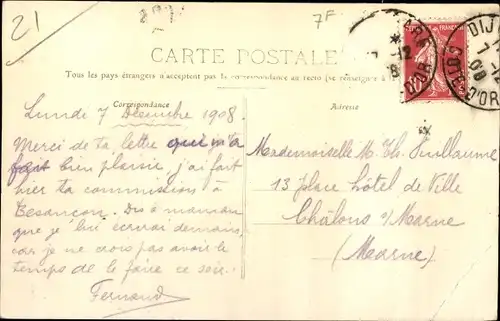 21
7F
CARTE POSTALE
Tous les pays étrangers n'acceptent pas la correspondance au recto (se renseigner à la
Correspondance
Adresse
DIJ
7-12
08
CÔTE-D'OR
Lundi 7 Décembre 1908.
Merci de ta lettre qui m'a
fait bien plaisir, j'ai fait
hier ta commission à
Besançon. Dis à maman
que je lui écrirai demain,
car je ne crois pas avoir le
temps de le faire ce soir.
Fernand
Mademoiselle M. Th.
13 place Hôtel de Ville
Châlons s/Marne
(Marne)